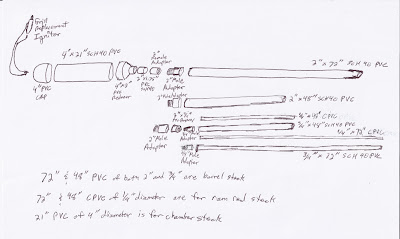 Grill
Replacement
Ignitor
4" x 21" SCH 40 PVC
4" PVC
CAP
4" x 2"
PVC
Reducer
2" x
PVC
2"
Female
Adapter
2" Male
Adapter
2" x 72" SCH 40 PVC
2" Male Adapter
2" x 48" SCH 40 PVC
3/4" x 48" CPVC
3/4" x 48" SCH 40 PVC
1/4" x 72" CPVC
2" Male
Adapter
3/4" Male
Adapter
3/4" x 72" SCH 40 PVC
72" & 48" PVC of both 2" and 3/4" are barrel stock
72" & 48" CPVC of 1/4" diameter are for ram rod stock
21" PVC of 4" diameter is for chamber stock